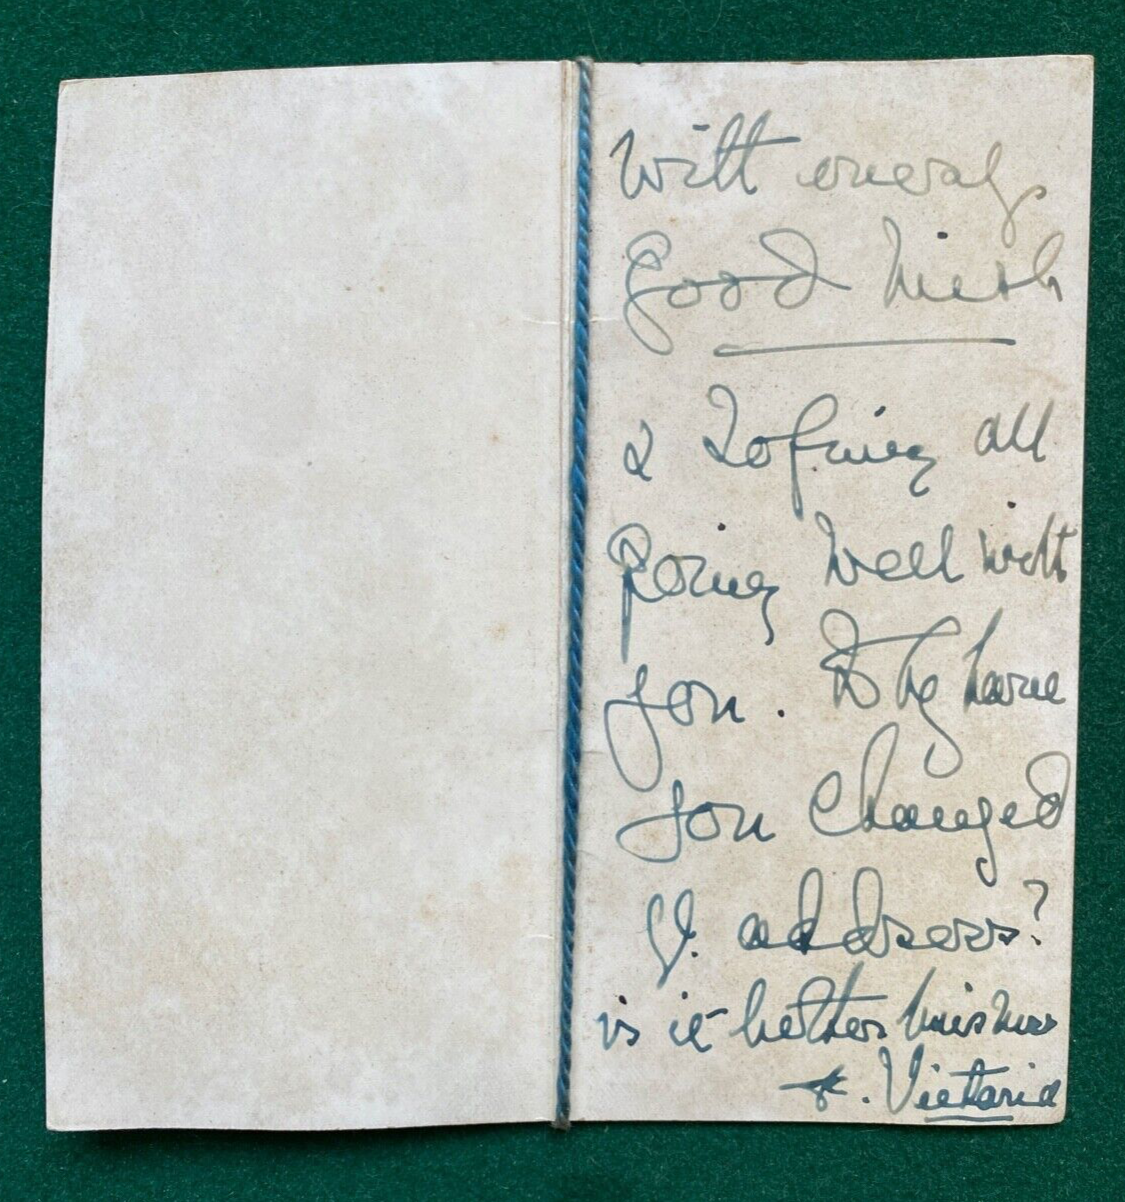 With every
Good Wish
& hoping all
going well with
you. Why have
you changed
yr. address?
is it better business
fr. Victoria